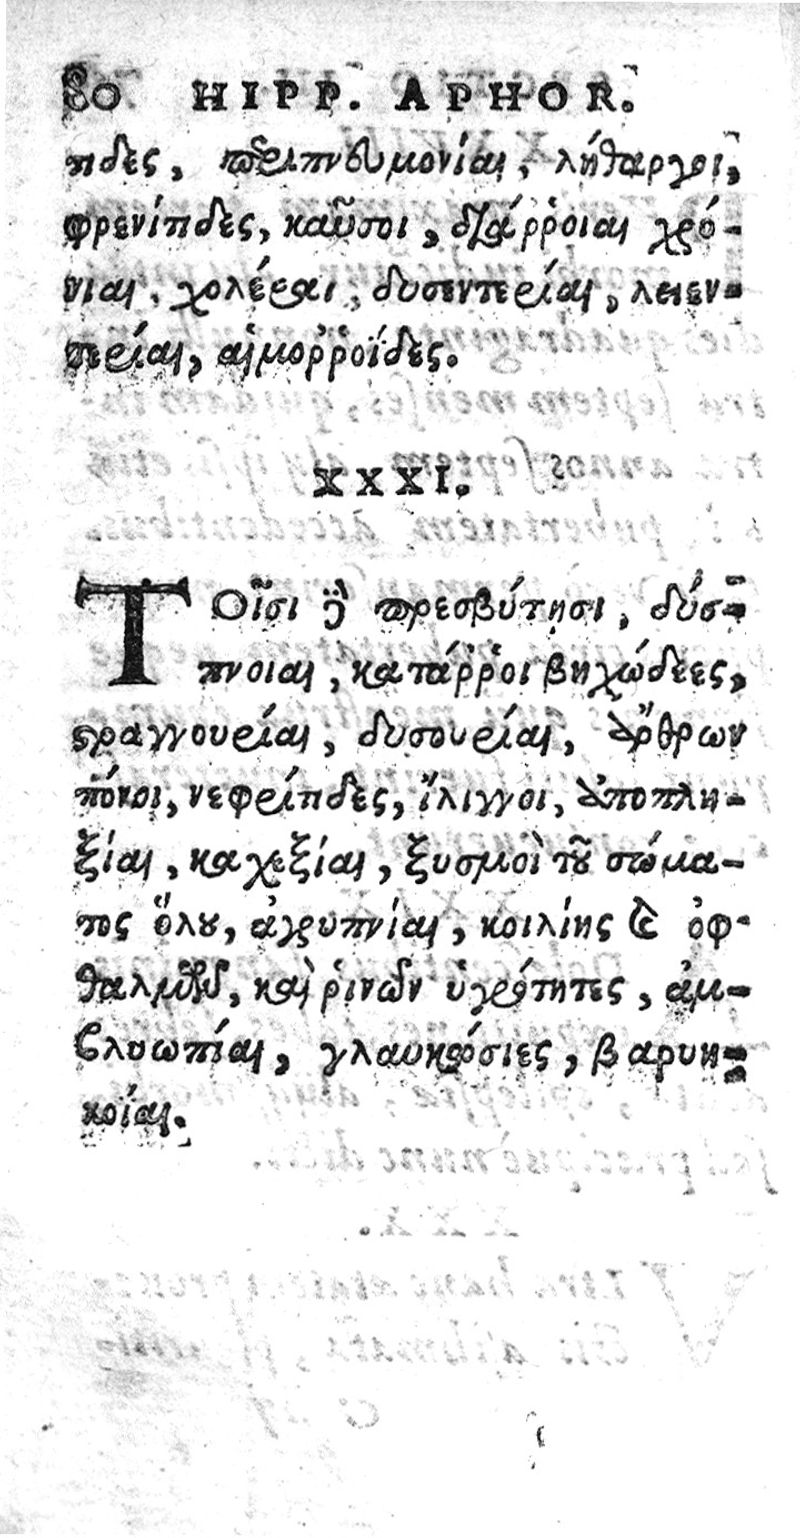 80 HIPP. APHOR.
τιδες, περιπνευμονίαι, λήθαργοι,
φρενίτιδες, καῦσοι, διάῤῥοιαι χρό-
νιαι, χολέραι, δυσεντερίαι, λειεν-
τερίαι, αἱμοῤῥοΐδες.
XXXI.
ΤΟῖσι δὲ πρεσβύτῃσι, δύσ-
πνοιαι, κατάῤῥοι βηχώδεες,
στραγγουρίαι, δυσουρίαι, ἄρθρων
πόνοι, νεφρίτιδες, ἴλιγγοι, ἀποπλη-
ξίαι, καχεξίαι, ξυσμοὶ τοῦ σώμα-
τος ὅλου, ἀγρυπνίαι, κοιλίης καὶ ὀφ-
θαλμῶν, καὶ ῥινῶν ὑγρότητες, ἀμ-
βλυωπίαι, γλαυκώσιες, βαρυη-
κοΐαι.